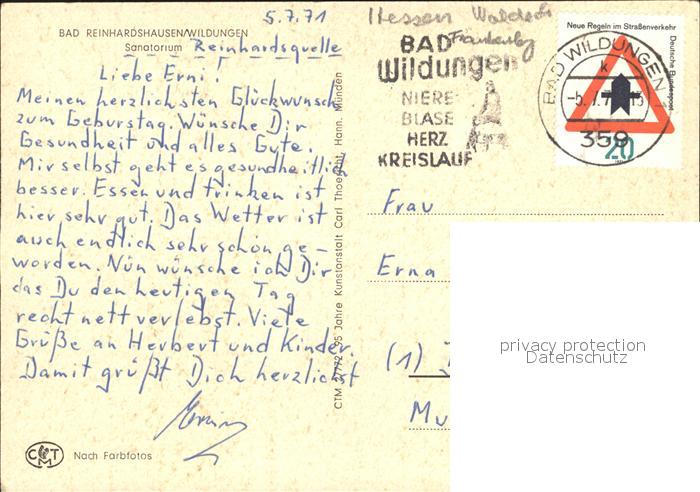 5.7.71
BAD REINHARDSHAUSEN/WILDUNGEN
Sanatorium Reinhardsquelle
Liebe Erni!
Meinen herzlichsten Glückwunsch
zum Geburstag. Wünsche Dir
Gesundheit und alles Gute.
Mir selbst geht es gesundheitlich
besser. Essen und trinken ist
hier sehr gut. Das Wetter ist
auch endlich sehr schön ge-
worden. Nun wünsche ich Dir
das Du den heutigen Tag
recht nett verlebst. Viele
Grüße an Herbert und Kinder.
Damit grüßt Dich herzlichst
CTM
Nach Farbfotos
95 Jahre Kunstanstalt Carl Thoericht, Hann. Münden
Hessen
Frankenberg
BAD
Wildungen
NIERE
BLASE
HERZ
KREISLAUF
Neue Regeln im Straßenverkehr
Deutsche Bundespost
20
BAD WILDUNGEN 1
k
359
Frau
Erna
(1)
Mu
privacy protection
Datenschutz